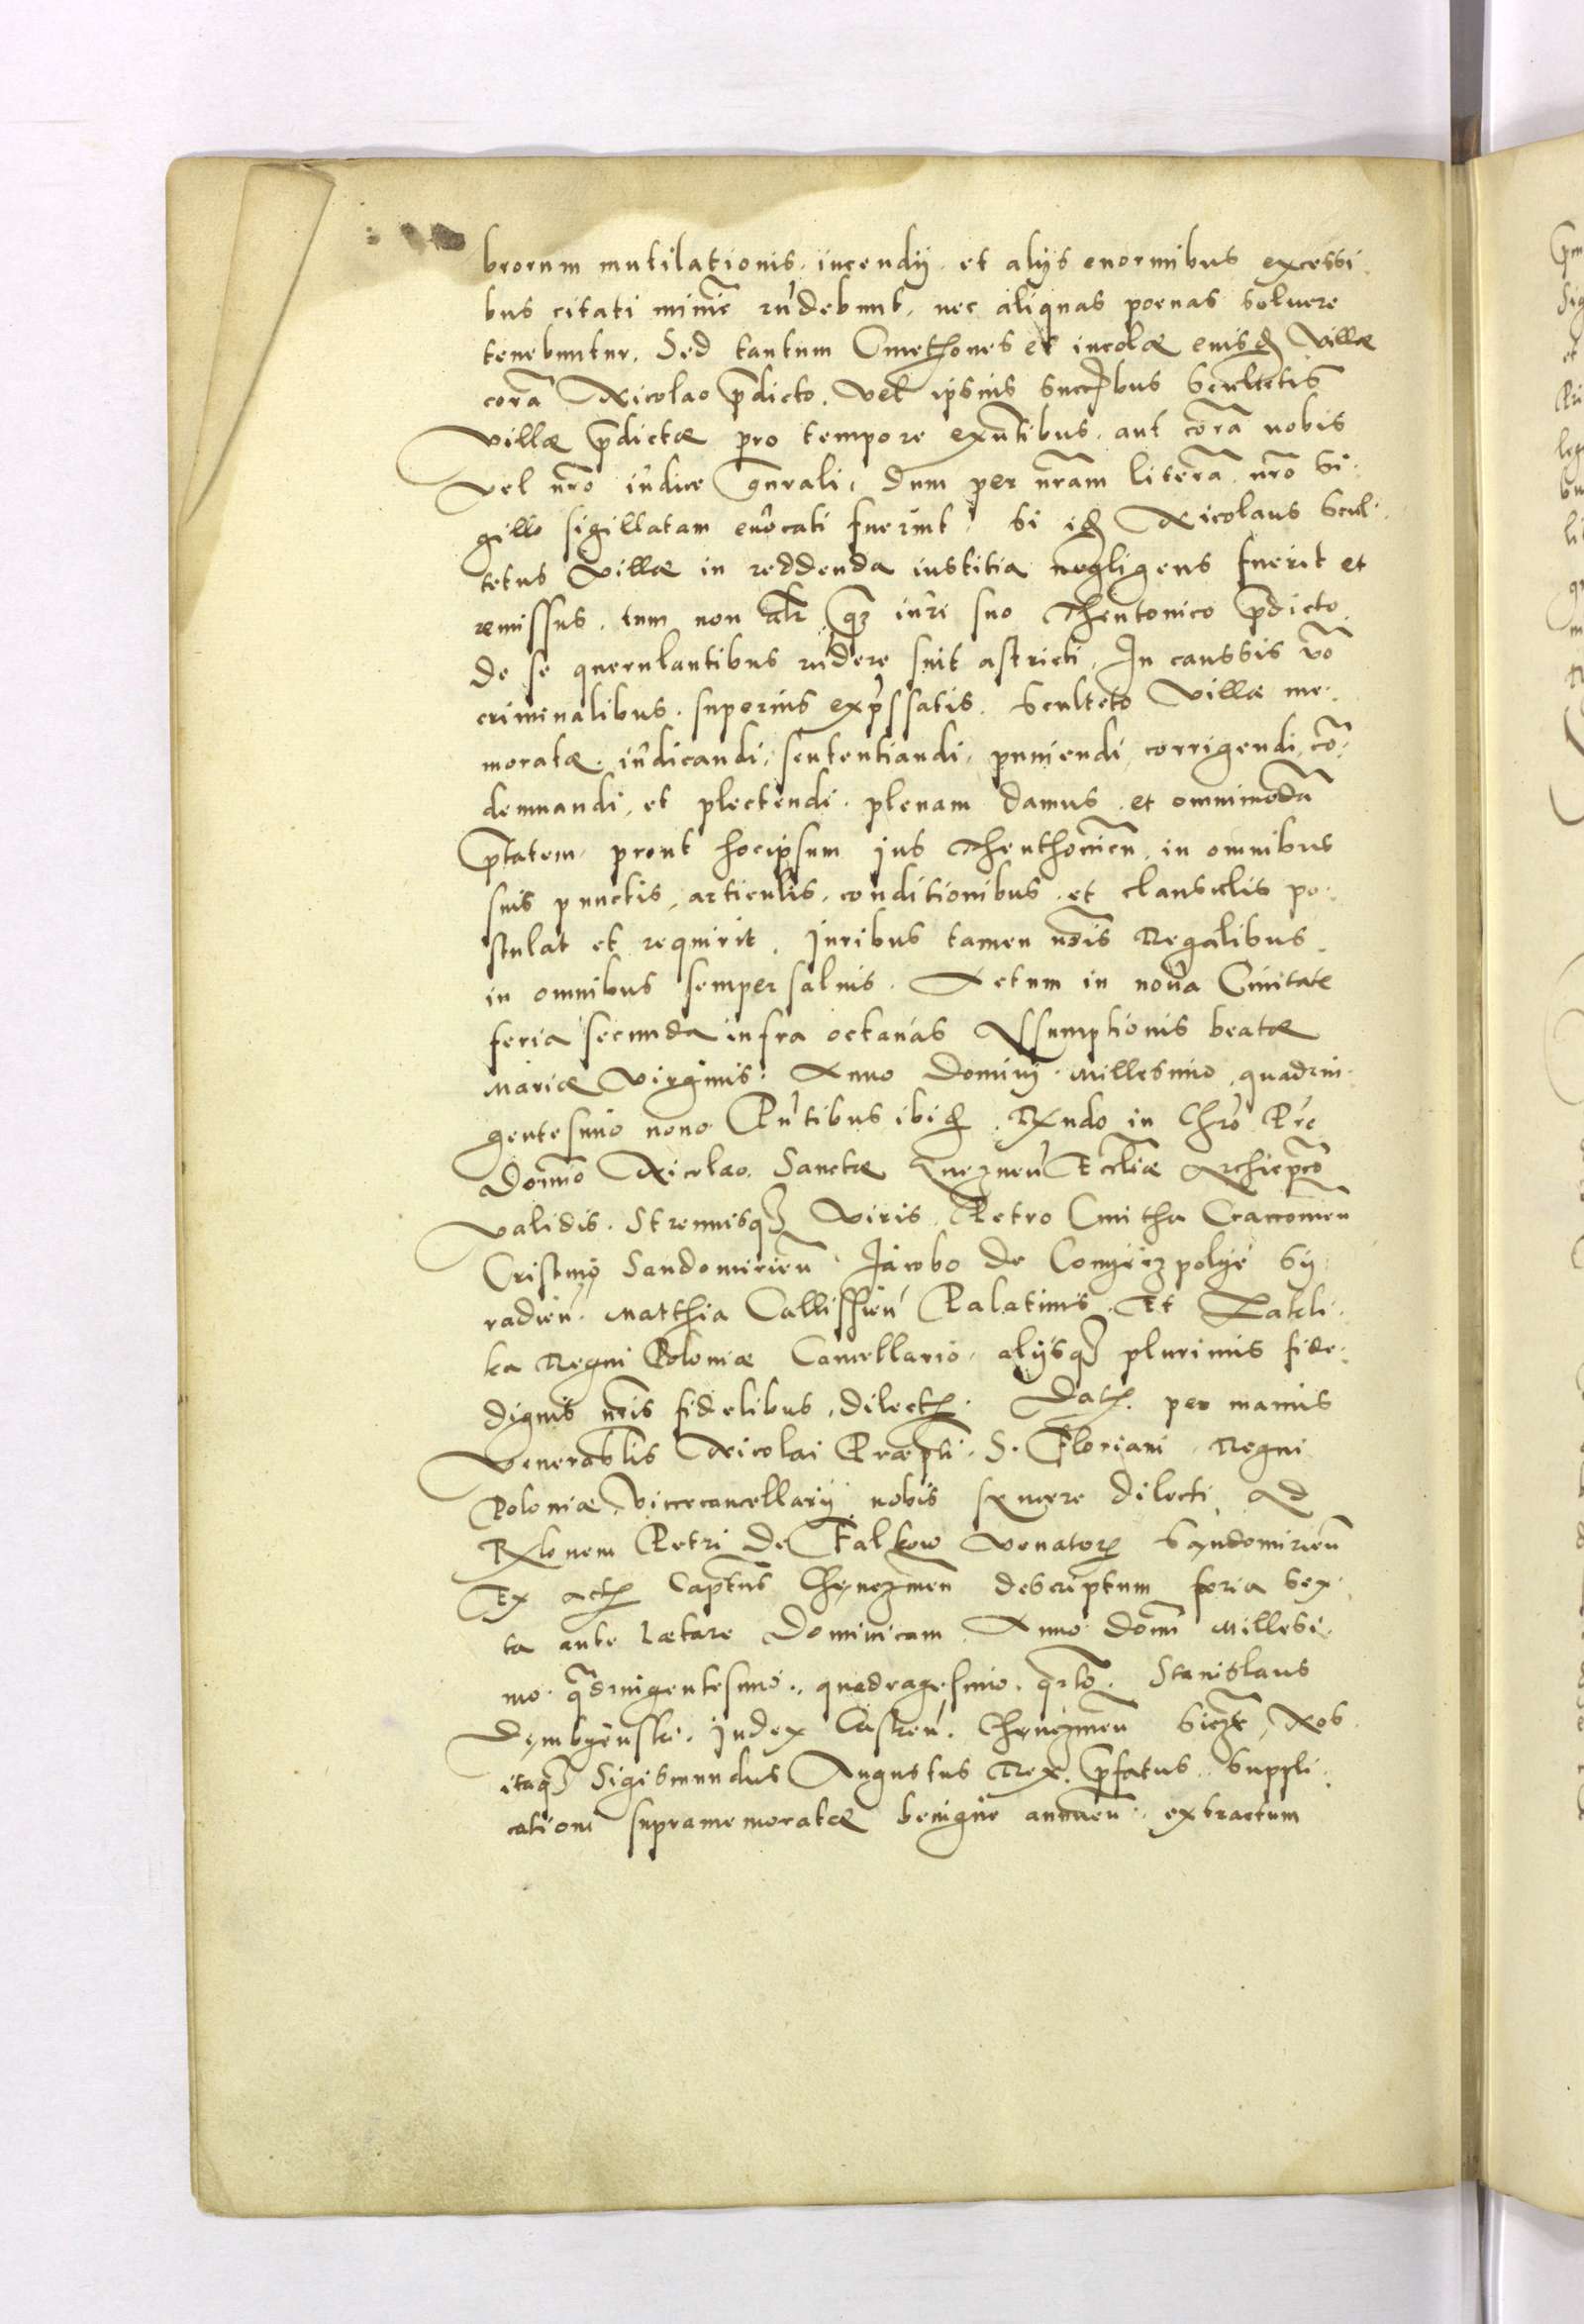 brorum mutilationis, incendÿ, et alÿs enormibus excessi-
bus citati minie rñdebunt, nec aliquas poenas soluere
tenebuntur, Sed tantum Cmethones et incolæ eiusd Villæ
corã Nicolao p̃dicto, vel ipsius succbus Scultetis
villæ p̃dictæ pro tempore exñtibus, aut corã nobis
vel nr̃o iudice gñrali, dum per nr̃am literã nr̃o Si-
gillo sigillatam euocati fuerint, Si id Nicolaus Scul-
tetus Villæ in reddenda iustitia negligens fuerit et
remissus, tum non alr q̃z iuri suo Theutonico p̃dicto
de se querulantibus rñdere snit astricti, In caussis vo
criminalibus, superius exp̃ssatis, Sculteto Villæ me-
moratæ, iudicandi, sententiandi, puniendi, corrigendi, cõ-
demnandi, et plectendi, plenam damus, et omnimodã
p̃tatem, prout hocipsum jus Theuthonicũ, in omnibus
suis punctis, articulis, conditionibus, et clausulis po-
stulat et requirit, Juribus tamen nr̃is Regalibus
in omnibus semper saluis. Actum in noua Ciuitate
feria secunda infra octauas Assumptionis beatæ
Mariæ Virginis: Anno Dominj Millesimo, quadrin-
gentesimo nono Pñtibus ibid, Rx̃ndo in Chr̃o Pr̃e
Domĩno Nicolao Sanctæ Gneznen̄ Eccl̃iæ Archiep̃co
Validis, Strenuisq Viris, Petro Cmitha Cracouien̄
Cristinõ Sandomirien̄, Jacobo de Conyeczpolye Sy-
radien̄, Matthia Callissien̄ Palatinis, Et Zakli-
ka Regni Poloniæ Cancellario, alÿsq plurimis fide-
dignis nr̃is fidelibus, dilect. Dat. per manus
Venerabl̃is Nicolai Præpti S. Floriani Regni
Poloniæ Vicecancellarÿ nobis syncere dilecti, Ad
Rx̃lonem Petri de Falkow venator Sandomirien̄
Ex act Captũs Chęnczinen̄ descriptum feria Sex-
ta ante Lætare Dominicam, Anno Domĩ Millesi-
mo, q̃dringentesimo, quadragesimo, qr̃to, Stanislaus
Dęmbyenski, judex Castren̄. Chęnczinen̄ Nos
itaq Sigismundus Augustus Rex, p̃fatus, Suppli-
cationi supramemoratæ benigne annuen̄, extractum